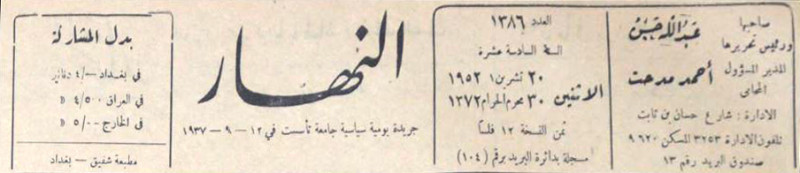 صاحبها
ورئيس تحريرها
عبد الله حسين
المدير المسؤول
المحامي
أحمد مدحت
الادارة : شارع حسان بن ثابت
تلفون الادارة ٣٢٥٣ المسكن ٩٦٢٠
صندوق البريد رقم ١٣
العدد ١٣٨٦
السنة السادسة عشرة
الاثنين
٢٠ تشرين١ ١٩٥٢
٣٠ محرم الحرام ١٣٧٢
ثمن النسخة ١٢ فلسا
مسجلة بدائرة البريد برقم (١٠٤)
النهار
جريدة يومية سياسية جامعة تأسست في ١٢ - ٩ - ١٩٣٧
بدل المشاركة
في بغداد ٤/٠٠ دنانير
في العراق ٤/٥٠٠ D
في الخارج ٥/٠٠ D
مطبعة شفيق - بغداد